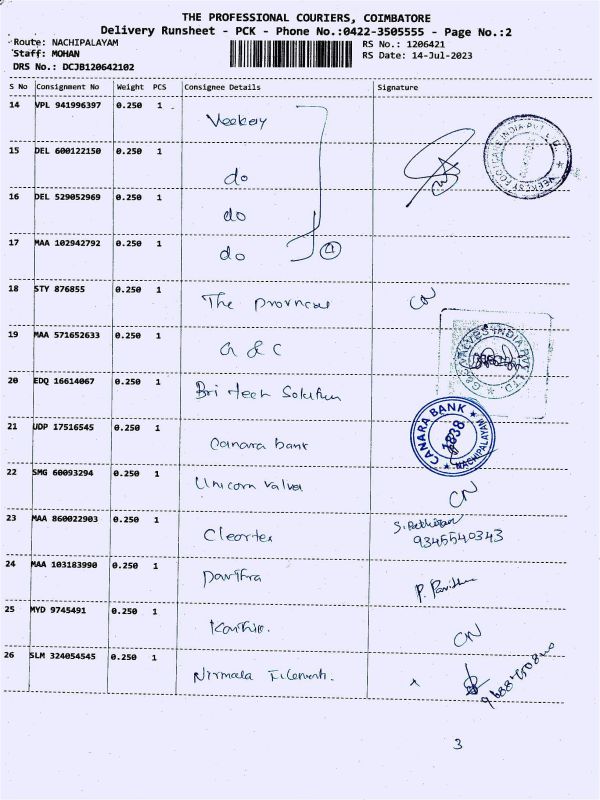 THE PROFESSIONAL COURIERS, COIMBATORE
Delivery Runsheet - PCK - Phone No.:0422-3505555 - Page No.:2
Route: NACHIPALAYAM RS No.: 1206421
Staff: MOHAN RS Date: 14-Jul-2023
DRS No.: DCJB120642102
S No Consignment No Weight PCS Consignee Details Signature
14 VPL 941996397 0.250 1 Veekay
15 DEL 600122150 0.250 1 do
16 DEL 529052969 0.250 1 do
17 MAA 102942792 0.250 1 do 4
18 STY 876855 0.250 1 The province CN
19 MAA 571652633 0.250 1 G & C
G&C VALVES INDIA PVT LTD
20 EDQ 16614067 0.250 1 Bri tech Solution
21 UDP 17516545 0.250 1 Canara bank
CANARA BANK 1838 NACHIPALAYAM
22 SMG 60093294 0.250 1 Unicorn Valves CN
23 MAA 860022903 0.250 1 Cleartex
9345540343
24 MAA 103183990 0.250 1 Pavithra P. Pavithra
25 MYD 9745491 0.250 1 Karthi CN
26 SLM 324054545 0.250 1 Nirmala Filements. x
3